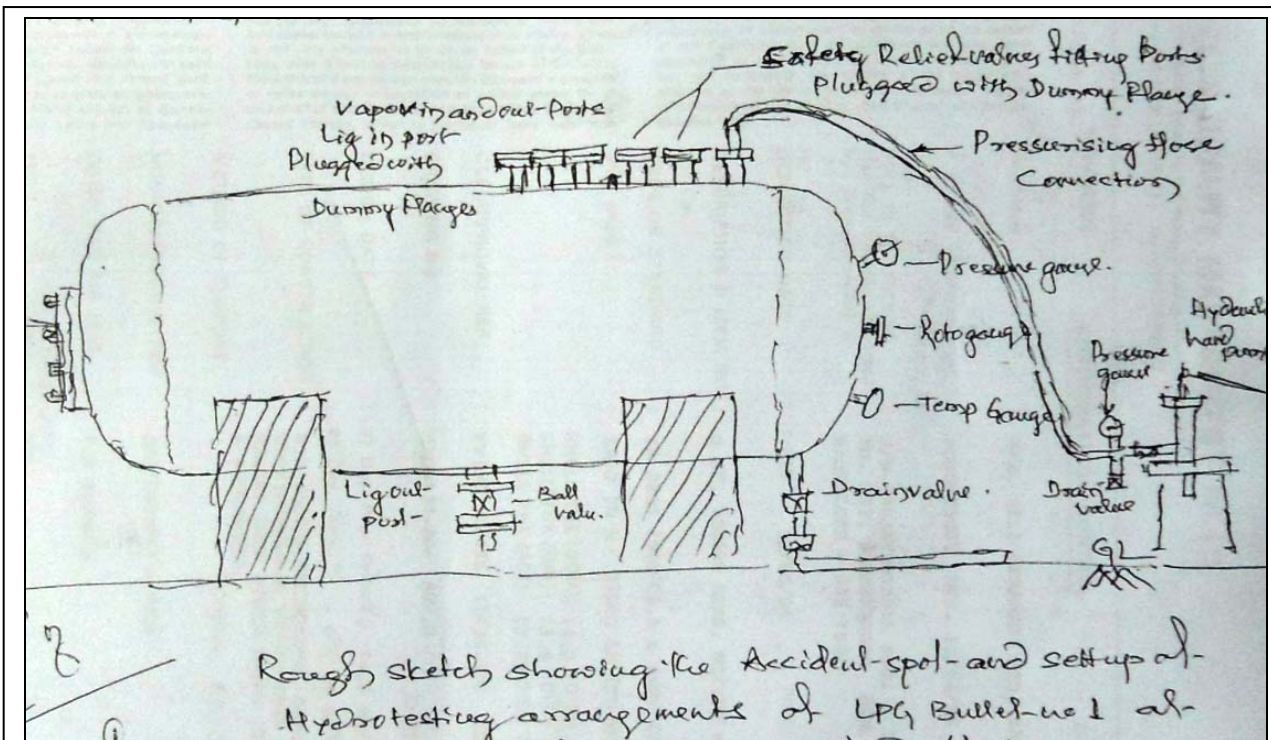 Safety Relief valves fitting Ports
Plugged with Dummy Flange.
Vapor in and out-Ports
Liq in port
Plugged with
Dummy Flanges
Pressurising Hose
Connection
Pressure gauge.
Rotogauge
Temp Gauge
Pressure
gauge
hand
Liq out-
port-
Ball
valv.
Drain valve.
Drain
valve
GL
Rough sketch showing the Accident-spot-and settup of-
Hydrotesting arrangements of LPG Bullet-no 1 at-